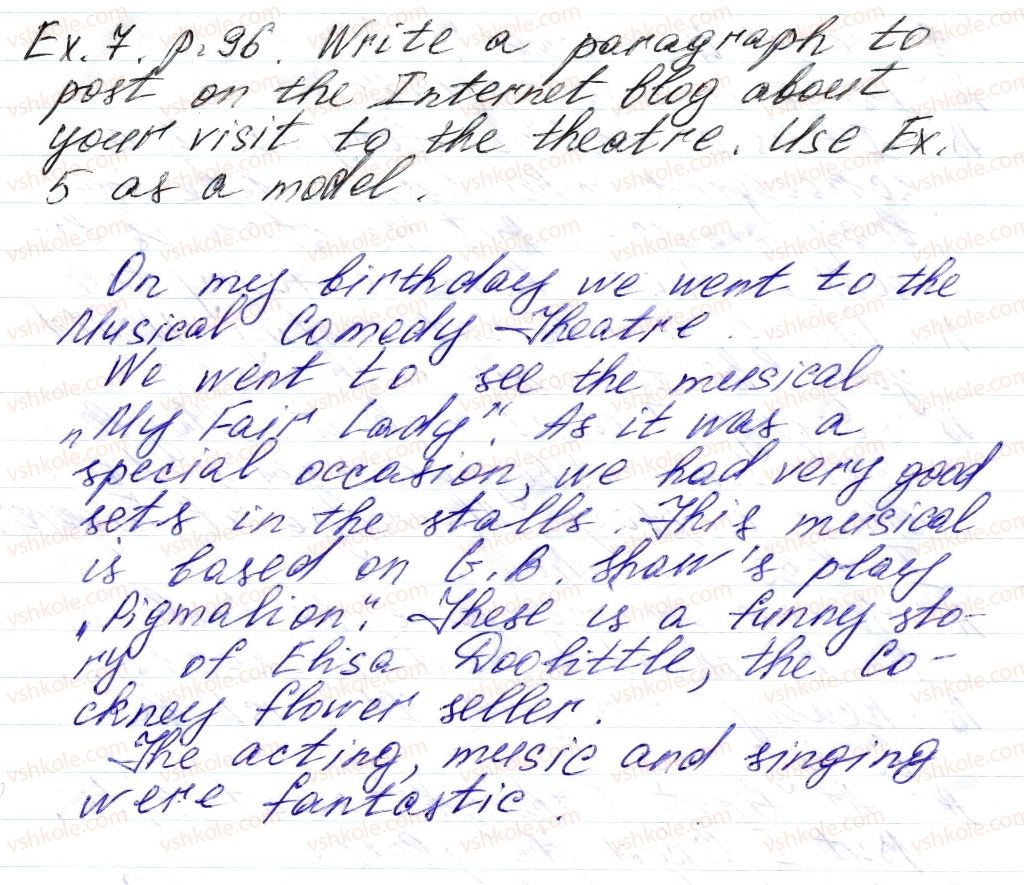 Ex. 7. p. 96. Write a paragraph to
post on the Internet blog about
your visit to the theatre. Use Ex.
5 as a model.
On my birthday we went to the
Musical Comedy Theatre.
We went to see the musical
„My Fair Lady". As it was a
special occasion, we had very good
sets in the stalls. This musical
is based on G.B. Shaw's play
„Pigmalion". These is a funny sto-
ry of Elisa Doolittle, the Co-
ckney flower seller.
The acting, music and singing
were fantastic.